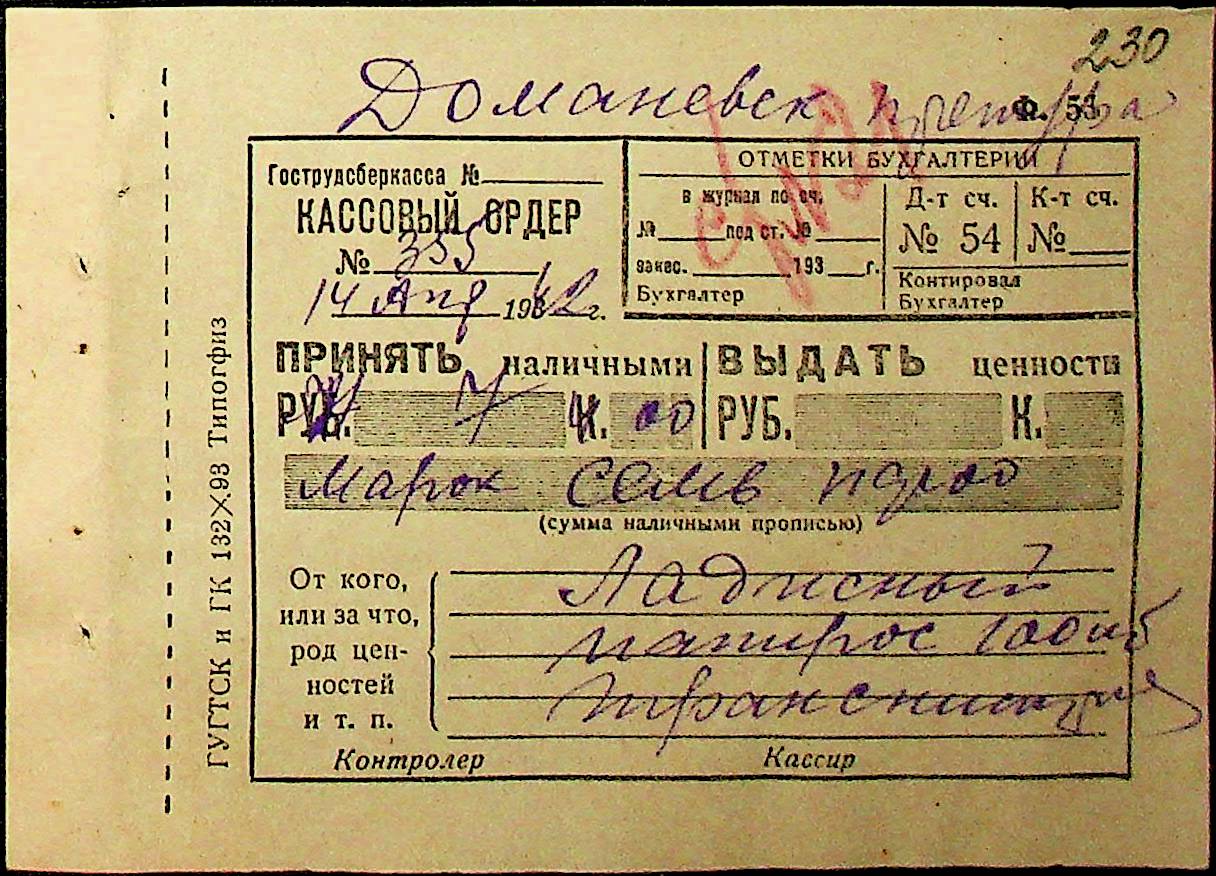 230
Доманевск претура
Ф. 53
Гострудсберкасса №
КАССОВЫЙ ОРДЕР
№ 355
14 Апр 1942 г.
ОТМЕТКИ БУХГАЛТЕРИИ
в журнал по сч.
№ под ст. №
занес. 193 г.
Бухгалтер
Д-т сч.
№ 54
К-т сч.
№
Контировал
Бухгалтер
ПРИНЯТЬ наличными
РУБ. 7 К. 00
ВЫДАТЬ ценности
РУБ. К.
Марок семь
(сумма наличными прописью)
От кого,
или за что,
род цен-
ностей
и т. п.
папирос 100 шт
Контролер Кассир
ГУГТСК и ГК 132×93 Типогфиз